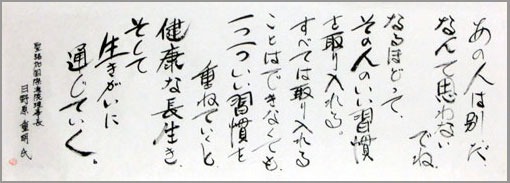 あの人は別だ、
なんて思わない
でね
なるほどって、
その人のいい習慣
を取り入れる。
すべては取り入れる
ことはできなくても、
一つ一ついい習慣を
重ねていくと、
健康な長生き、
そして
生きがいに
通じていく。
聖路加国際病院理事長
日野原重明氏